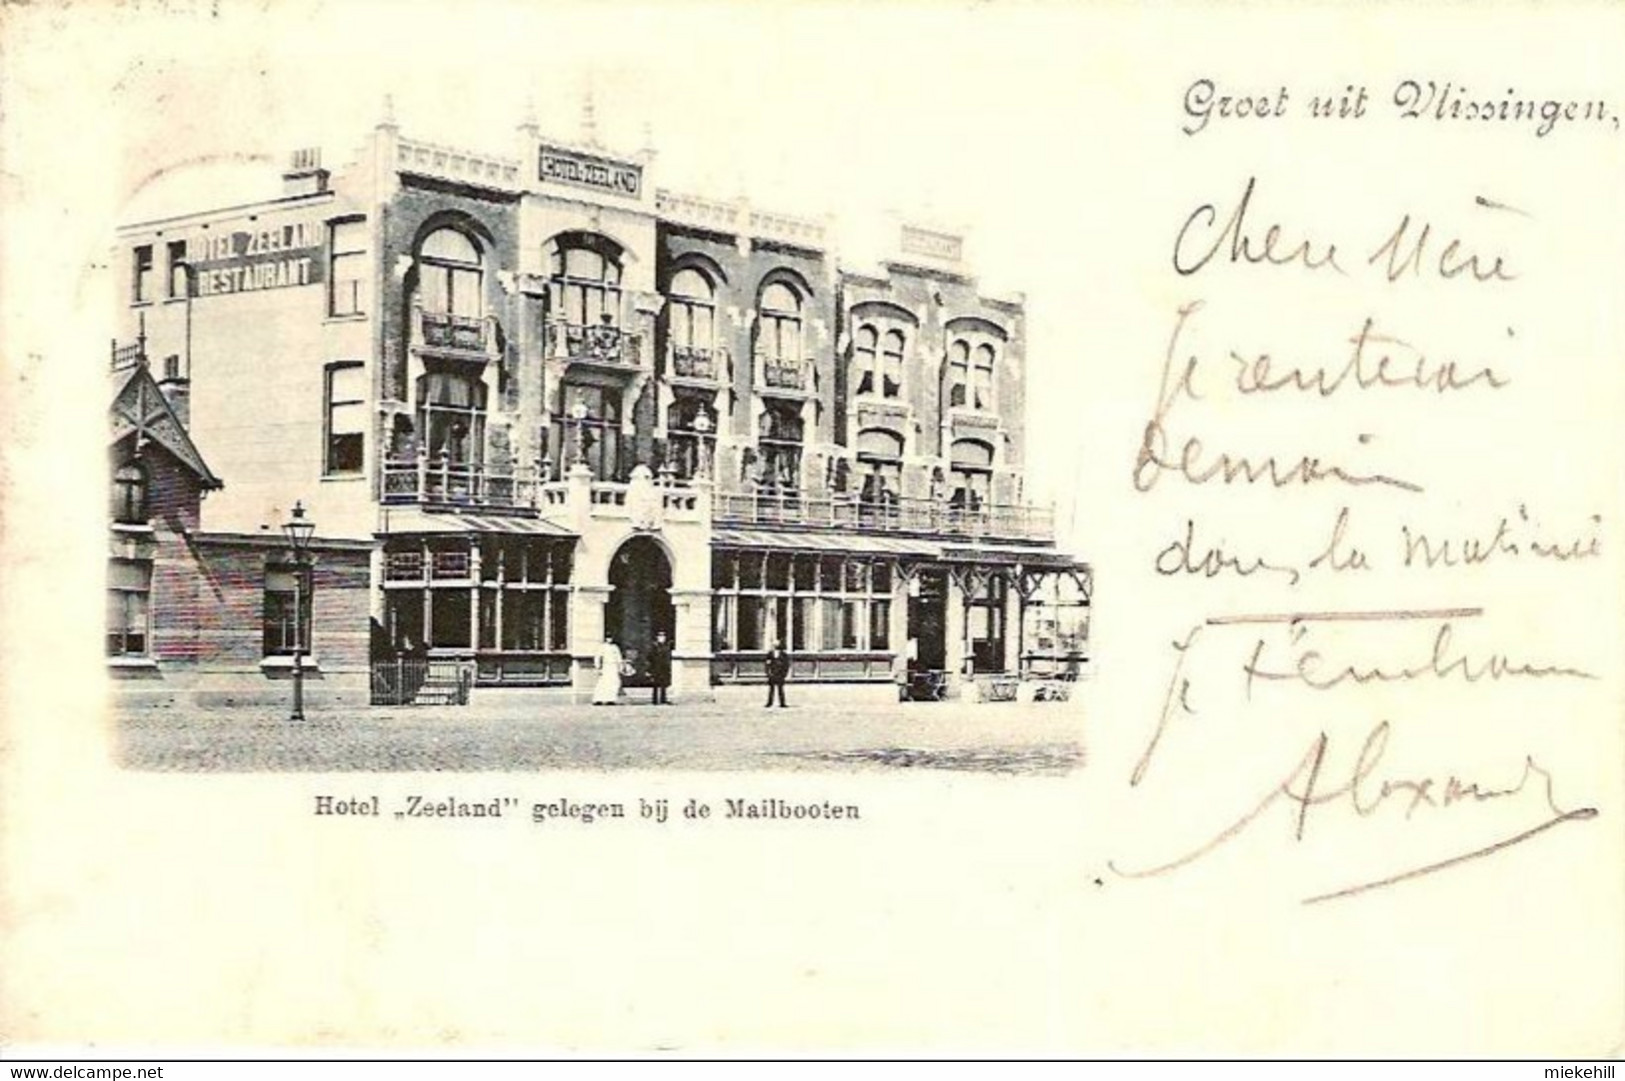 Groet uit Vlissingen,
HOTEL-ZEELAND
HOTEL ZEELAND
RESTAURANT
Chere Mère
Je rentrerai
demain
dans la matinée
Je t'embrasse
Alexandre
Hotel „Zeeland” gelegen bij de Mailbooten
miekehill